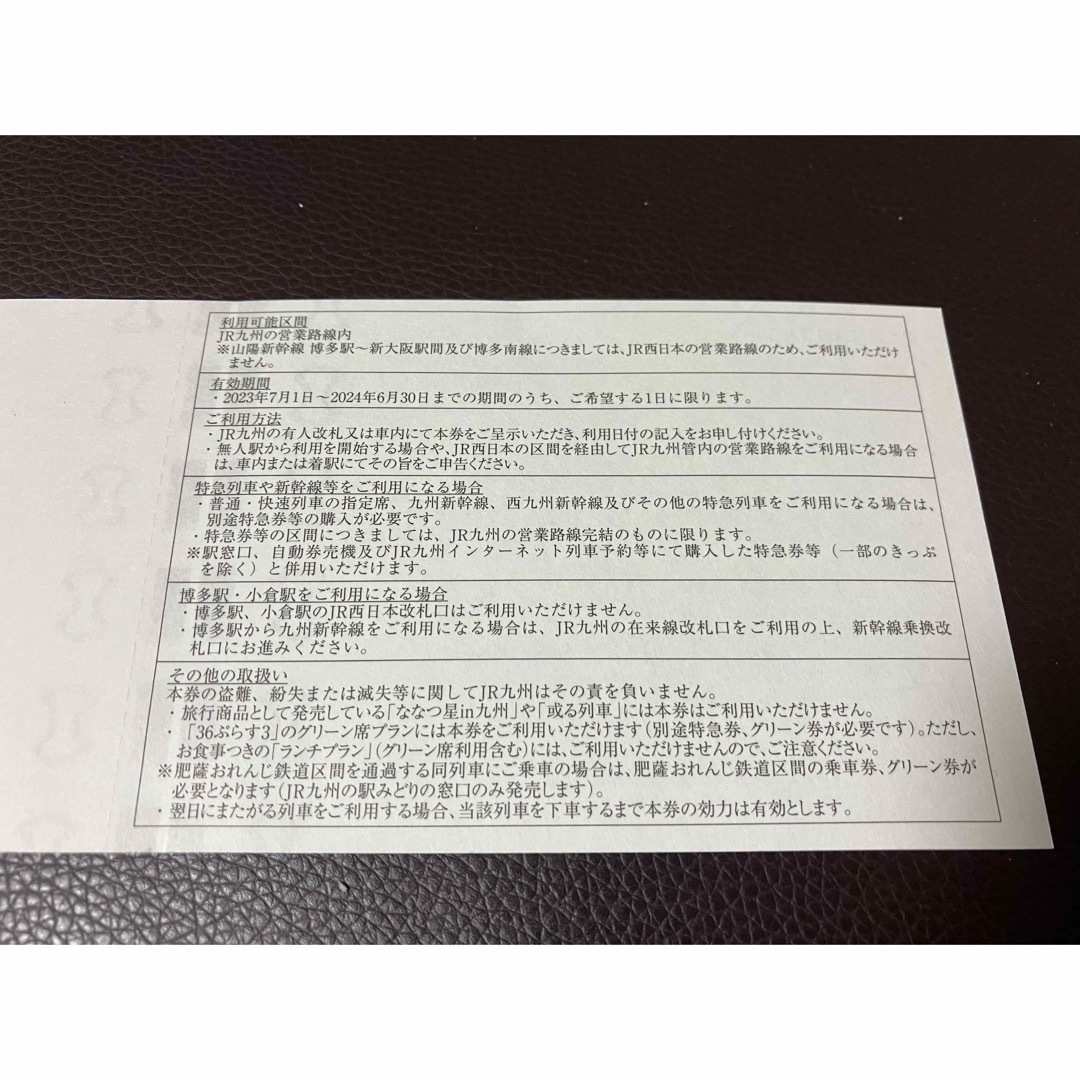 利用可能区間
JR九州の営業路線内
※山陽新幹線 博多駅～新大阪駅間及び博多南線につきましては、JR西日本の営業路線のため、ご利用いただけ
ません。
有効期間
・2023年7月1日～2024年6月30日までの期間のうち、ご希望する1日に限ります。
ご利用方法
・JR九州の有人改札又は車内にて本券をご呈示いただき、利用日付の記入をお申し付けください。
・無人駅から利用を開始する場合や、JR西日本の区間を経由してJR九州管内の営業路線をご利用になる場合
は、車内または着駅にてその旨をご申告ください。
特急列車や新幹線等をご利用になる場合
・普通・快速列車の指定席、九州新幹線、西九州新幹線及びその他の特急列車をご利用になる場合は、
別途特急券等の購入が必要です。
・特急券等の区間につきましては、JR九州の営業路線完結のものに限ります。
※駅窓口、自動券売機及びJR九州インターネット列車予約等にて購入した特急券等（一部のきっぷ
を除く）と併用いただけます。
博多駅・小倉駅をご利用になる場合
・博多駅、小倉駅のJR西日本改札口はご利用いただけません。
・博多駅から九州新幹線をご利用になる場合は、JR九州の在来線改札口をご利用の上、新幹線乗換改
札口にお進みください。
その他の取扱い
本券の盗難、紛失または滅失等に関してJR九州はその責を負いません。
・旅行商品として発売している「ななつ星in九州」や「或る列車」には本券はご利用いただけません。
・「36ぷらす3」のグリーン席プランには本券をご利用いただけます（別途特急券、グリーン券が必要です）。ただし、
お食事つきの「ランチプラン」（グリーン席利用含む）には、ご利用いただけませんので、ご注意ください。
※肥薩おれんじ鉄道区間を通過する同列車にご乗車の場合は、肥薩おれんじ鉄道区間の乗車券、グリーン券が
必要となります（JR九州の駅みどりの窓口のみ発売します）。
・翌日にまたがる列車をご利用する場合、当該列車を下車するまで本券の効力は有効とします。